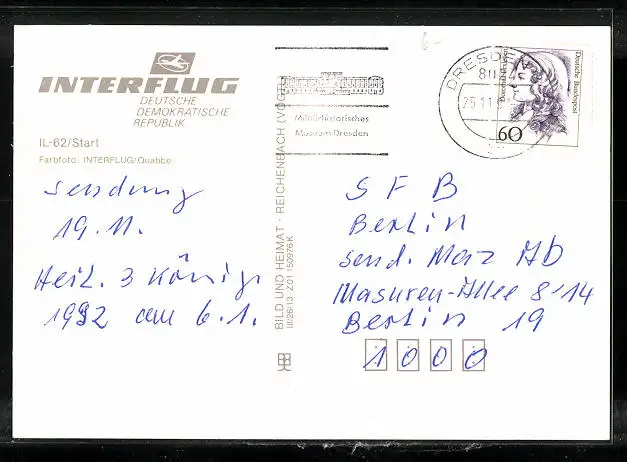 INTERFLUG
DEUTSCHE
DEMOKRATISCHE
REPUBLIK
IL-62/Start
Farbfoto: INTERFLUG/Quabbe
Sendung
19.11.
Heil. 3 Könige
1992 am 6.1.
BILD UND HEIMAT · REICHENBACH (VOGTL
III/26/13 Z 01 150976 K
Militärhistorisches
Museum Dresden
DRESDEN
25.11.
Deutsche Bundespost
60
S F B
Berlin
send. Marz Ab
Masuren-Allee 8-14
Berlin 19
1000